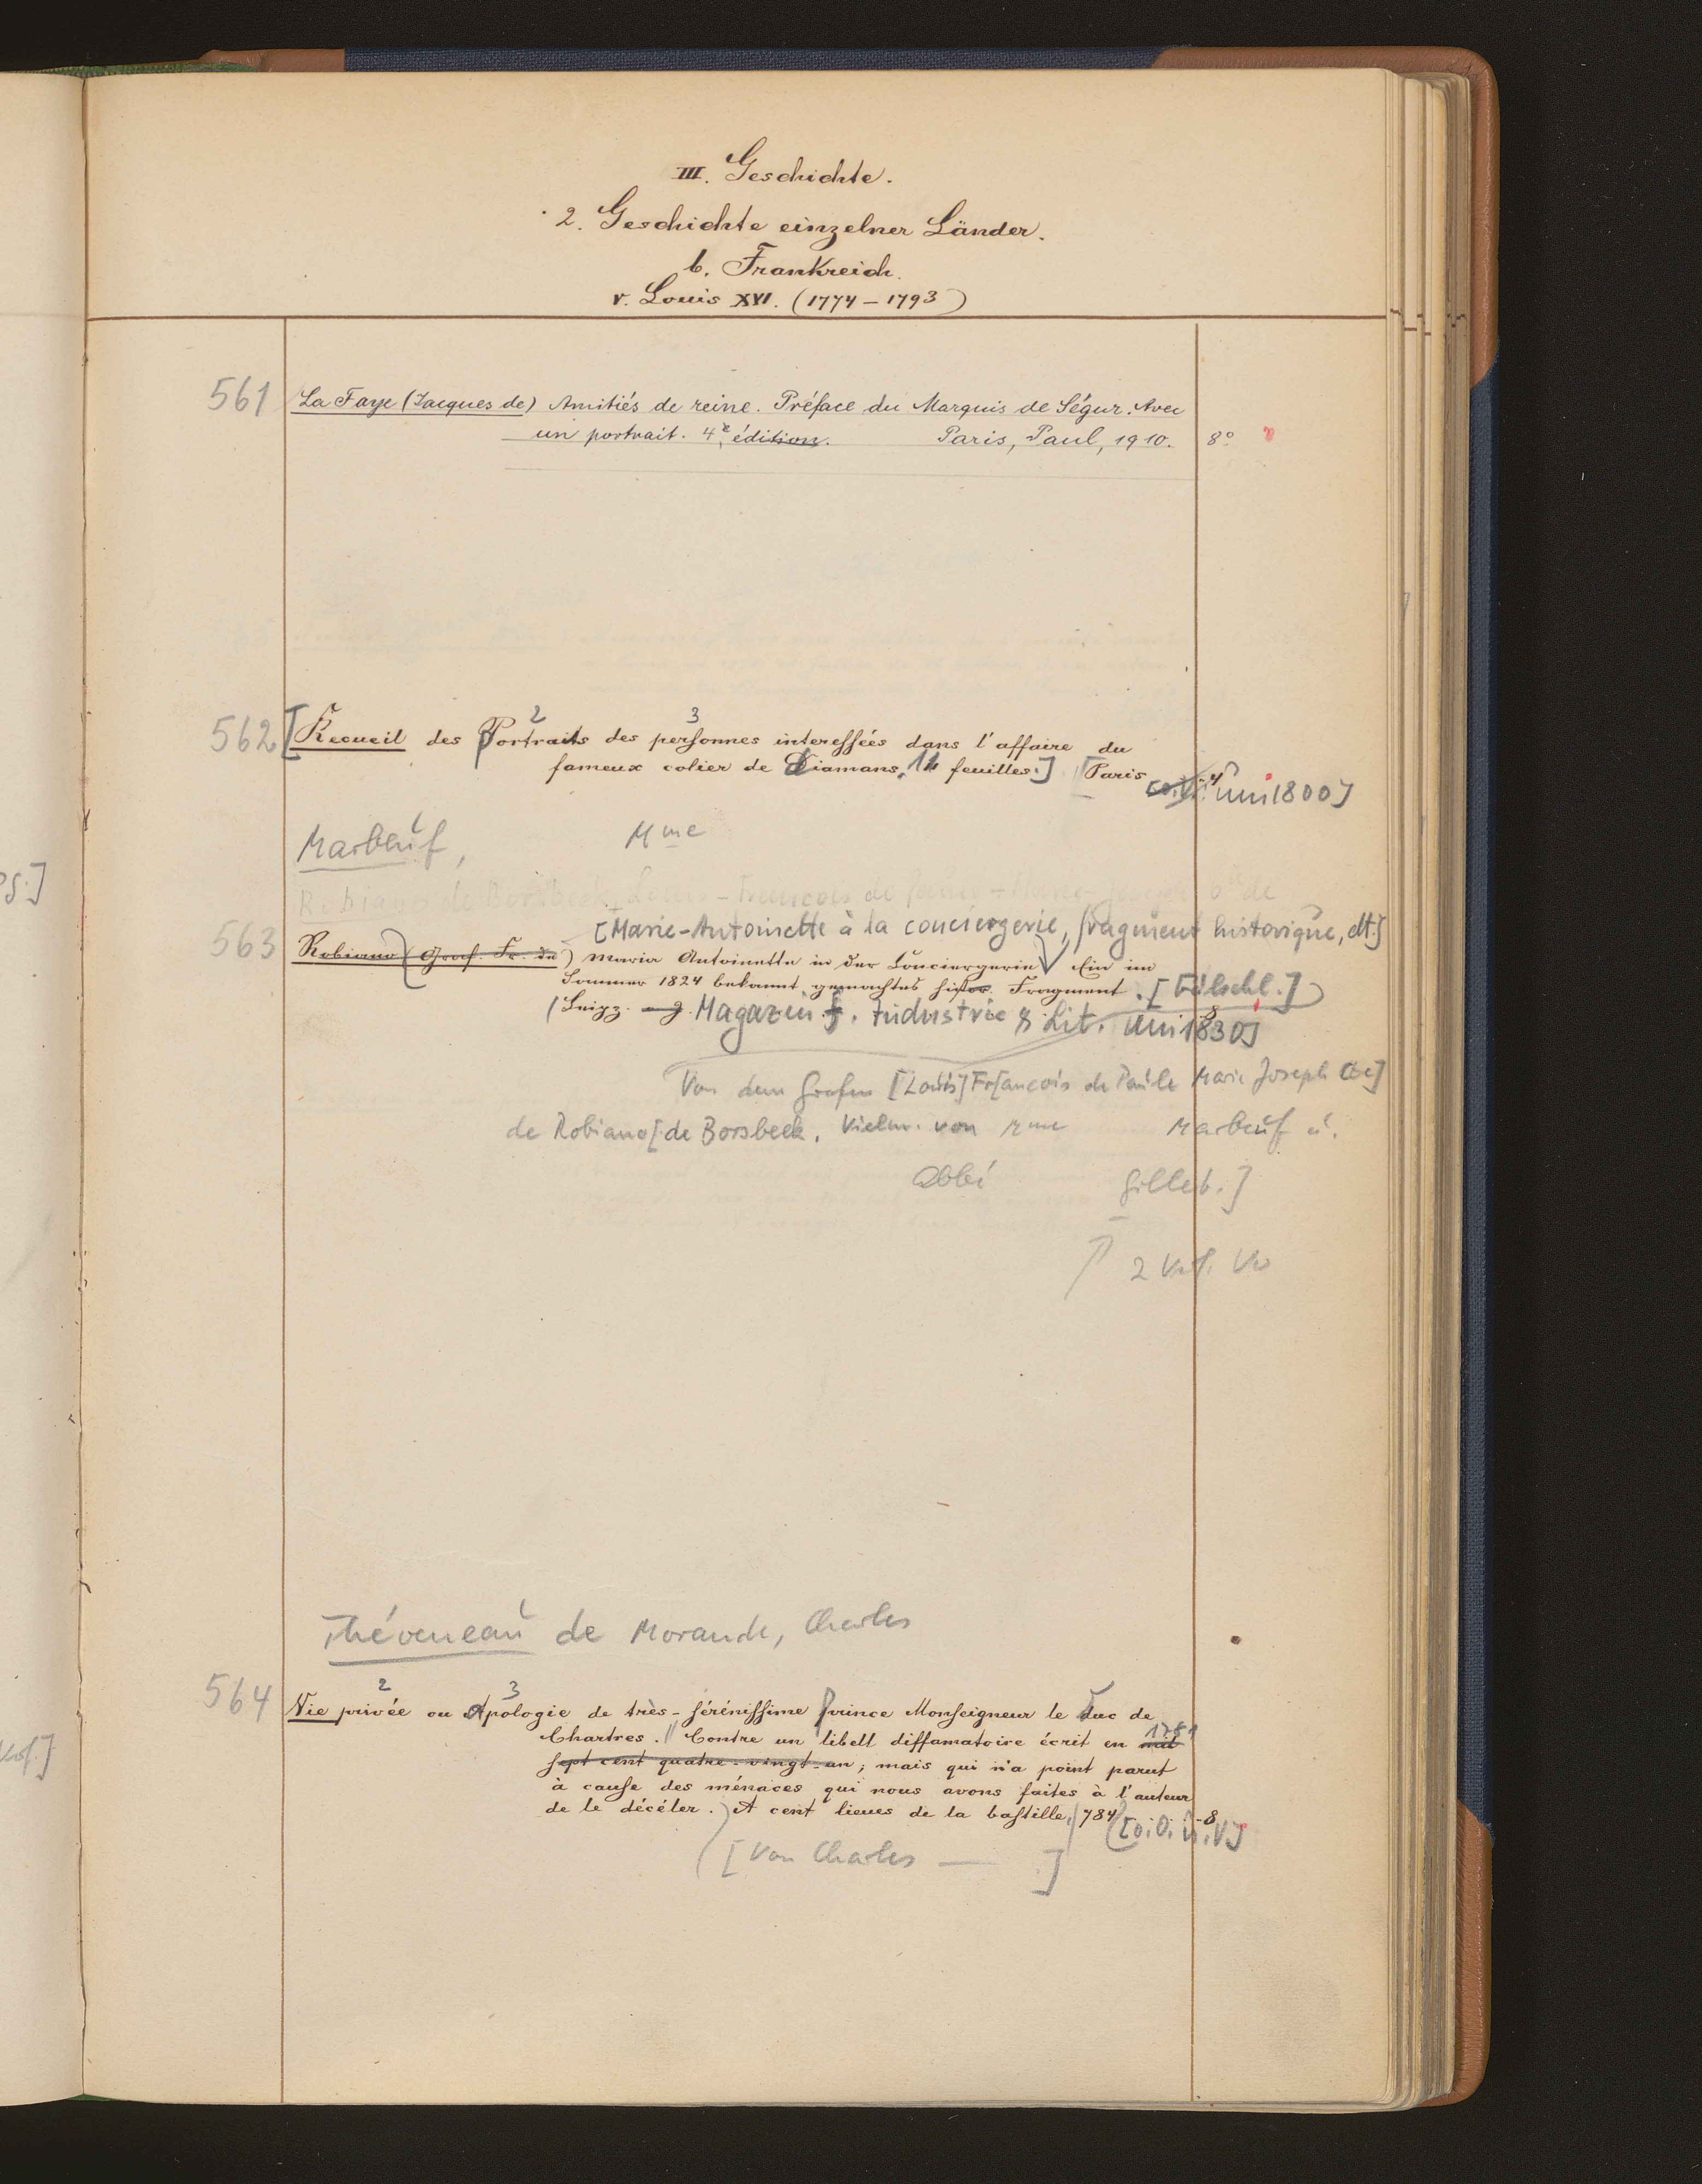 III. Geschichte.
2. Geschichte einzelner Länder.
b. Frankreich.
v. Louis XVI. (1774–1793)
561 La Faye (Jacques de) Amitiés de reine. Préface du Marquis de Ségur. Avec
un portrait. 4e édition. Paris, Paul, 1910. 8°
2 3
562 [Recueil des Portraits des personnes interessées dans l'affaire du
fameux colier de Diamans. 14 feuilles.] Paris 4
um 1800]
Marbeuf, Mme
Robiano de Borsbeek, Louis-François de Paule-Marie-Joseph de
[Marie-Antoinette à la conciergerie, fragment historique, dt.]
563 Robiano (Graf. Fr. de) Maria Antoinette in der Conciergerie. Ein im
Sommer 1824 bekannt gemachtes histor. Fragment. [Fälschl.]
Leipz. Magazin f. Industrie & Lit. um 1830] 8
Von dem Grafen [Louis] Fr[ancois de Paule Marie Joseph]
de Robiano [de Borsbeek. Vielm. von Mme Marbeuf u.
Abbé Gillet.]
2 Verf. Vw
Théveneau de Morande, Charles
2 3
564 Vie privée ou Apologie de très-sérénissime prince Monseigneur le Duc de
Chartres. Contre un libell diffamatoire écrit en mil 1781
sept cent quatre-vingt-un; mais qui n'a point parut
à cause des ménaces qui nous avons faites à l'auteur
de le décéler. A cent lieues de la bastille, 784 8
[o. O. u. V.]
[Von Charles — ]